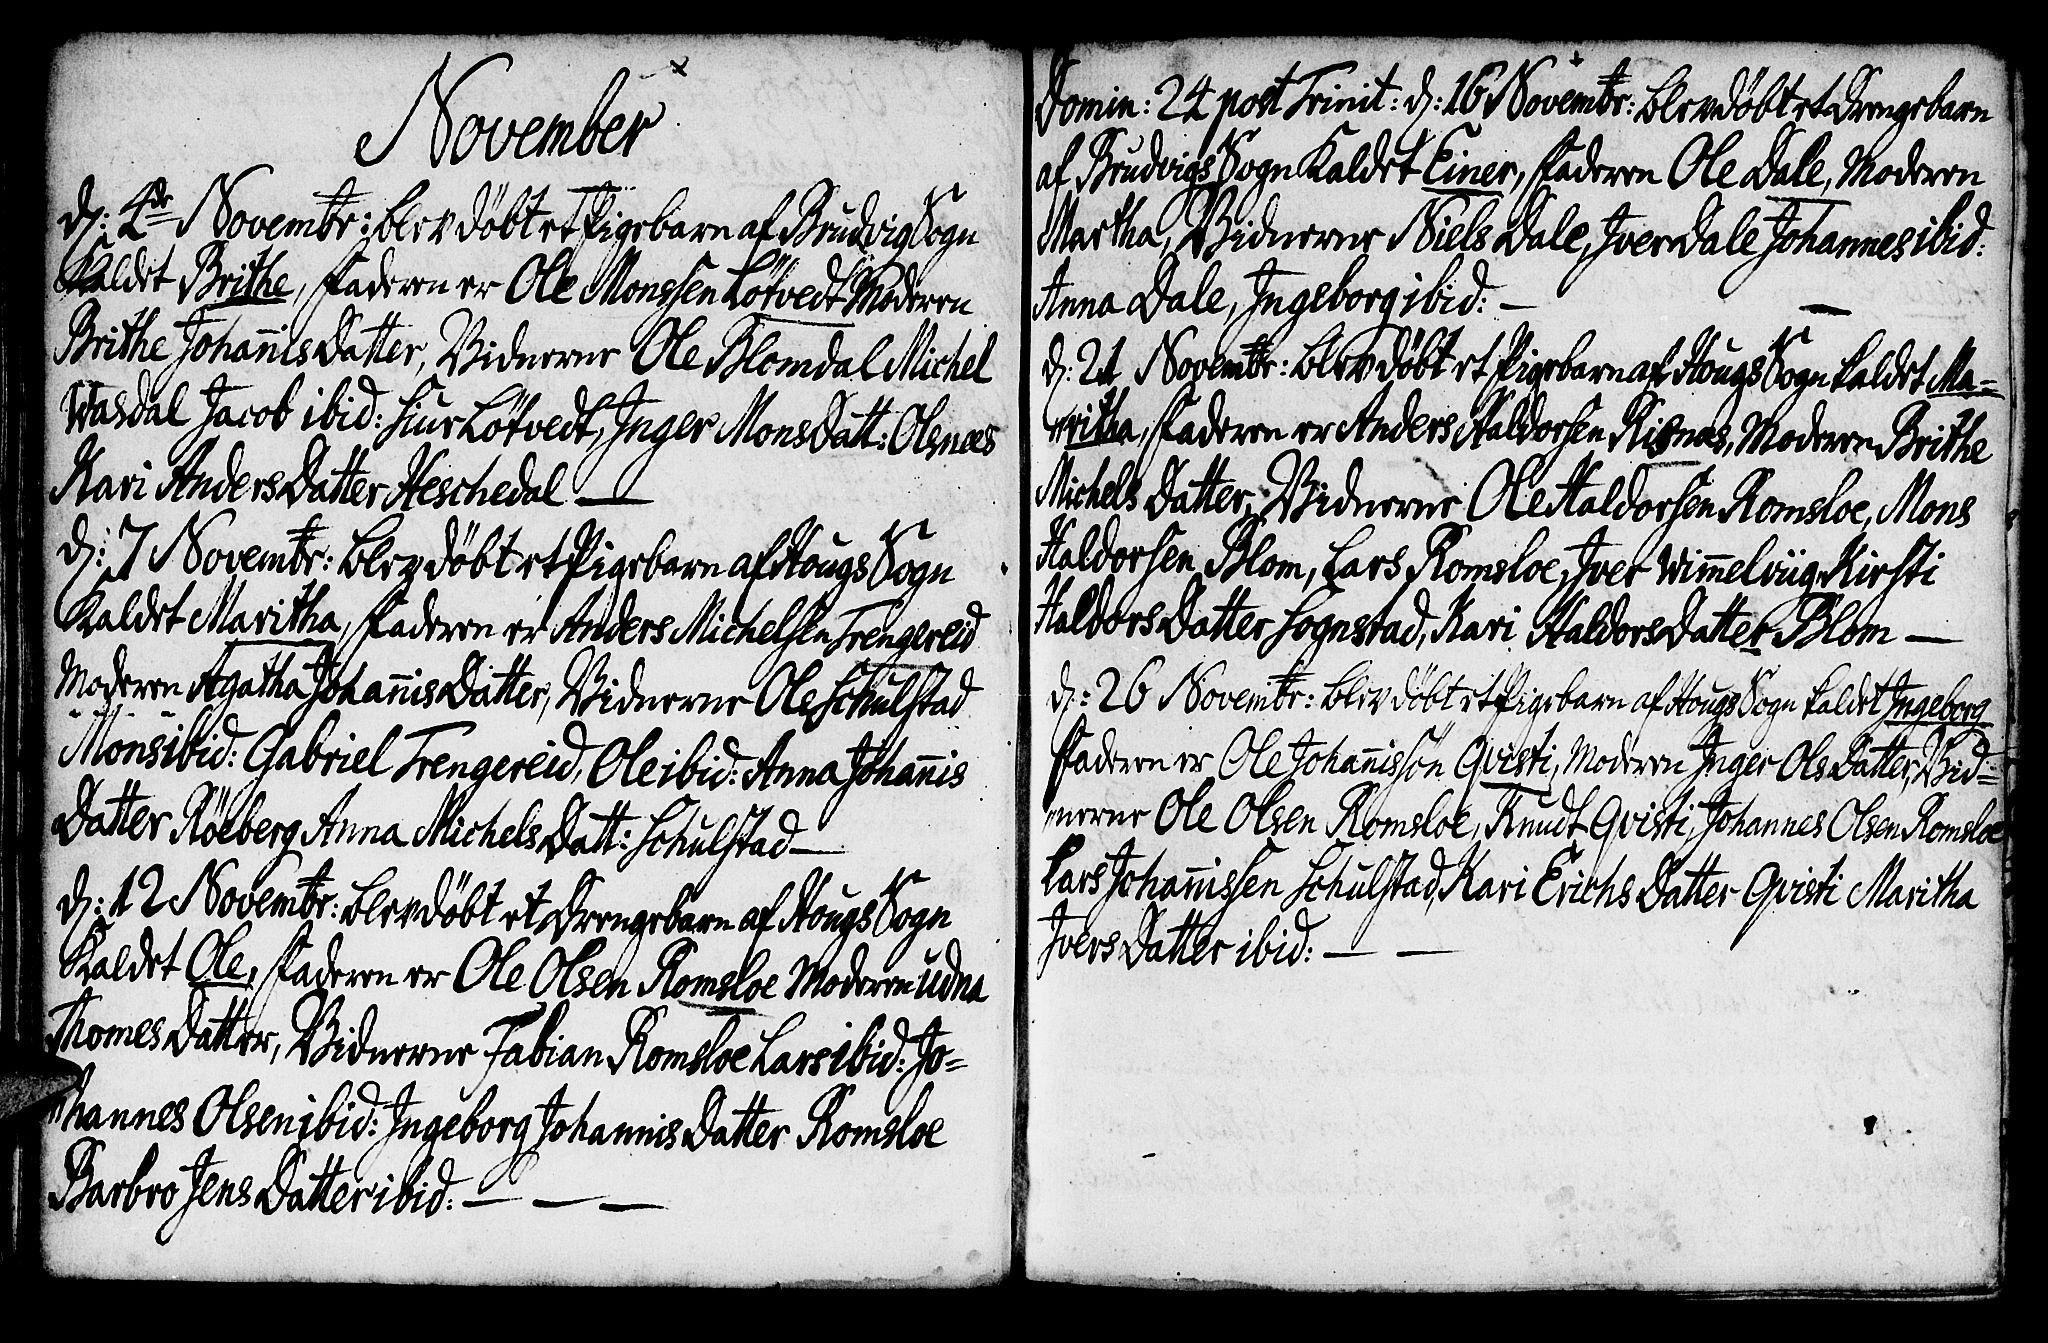 November
d: 4de Novembr: blev döbt et Pigebarn af Brudvig Sogn
Kaldet Brithe, Faderen er Ole Monssen Lötvedt Moderen
Brithe Johannis Datter, Vidnerne Ole Blomdal Michel
Wasdal Jacob ibid: Siur Lötvedt, Inger Mons Datt: Olsnæs
Kari Anders Datter Heschedal —
d: 7 Novembr: blev döbt et Pigebarn af Hougs Sogn
Kaldet Maritha, Faderen er Anders Michelsen Trengereid
Moderen Agatha Johannis Datter, Vidnerne Ole Schulstad
Mons ibid: Gabriel Trengereid, Ole ibid: Anna Johannis
Datter Röeberg Anna Michels Datt: Schulstad —
d: 12 Novembr: blev döbt et Drengebarn af Hougs Sogn
Kaldet Ole, Faderen er Ole Olsen Romsloe Moderen Udna
Thomes Datter, Vidnerne Fabian Romsloe Lars ibid: Jo=
hannes Olsen ibid: Ingeborg Johannis Datter Romsloe
Barbro Jens Datter ibid: — — —
Domin: 24 post Trinit: d: 16 Novembr: blev döbt et Drengebarn
af Brudvigs Sogn Kaldet Einer, Faderen Ole Dale, Moderen
Martha, Vidnerne Niels Dale, Iver Dale Johannes ibid:
Anna Dale, Ingeborg ibid: —
d: 21 Novembr: blev döbt et Pigebarn af Hougs Sogn kaldet Ma=
ritha, Faderen er Anders Haldorsen Risnæs, Moderen Brithe
Michels Datter, Vidnerne Ole Haldorsen Romsloe, Mons
Haldorsen Blom, Lars Romsloe, Iver Wimmelviig, Kirsti
Haldors Datter Sognstad, Kari Haldors Datter Blom —
d: 26 Novembr: blev döbt et Pigebarn af Hougs Sogn kaldet Ingeborg
Faderen er Ole Johannissön Qvisti, Moderen Inger Ols Datter, Vid=
nerne Ole Olsen Romsloe, Knudt Qvisti, Johannes Olsen Romsloe
Lars Johannissen Schulstad, Kari Erichs Datter Qvisti Maritha
Ivers Datter ibid: — —